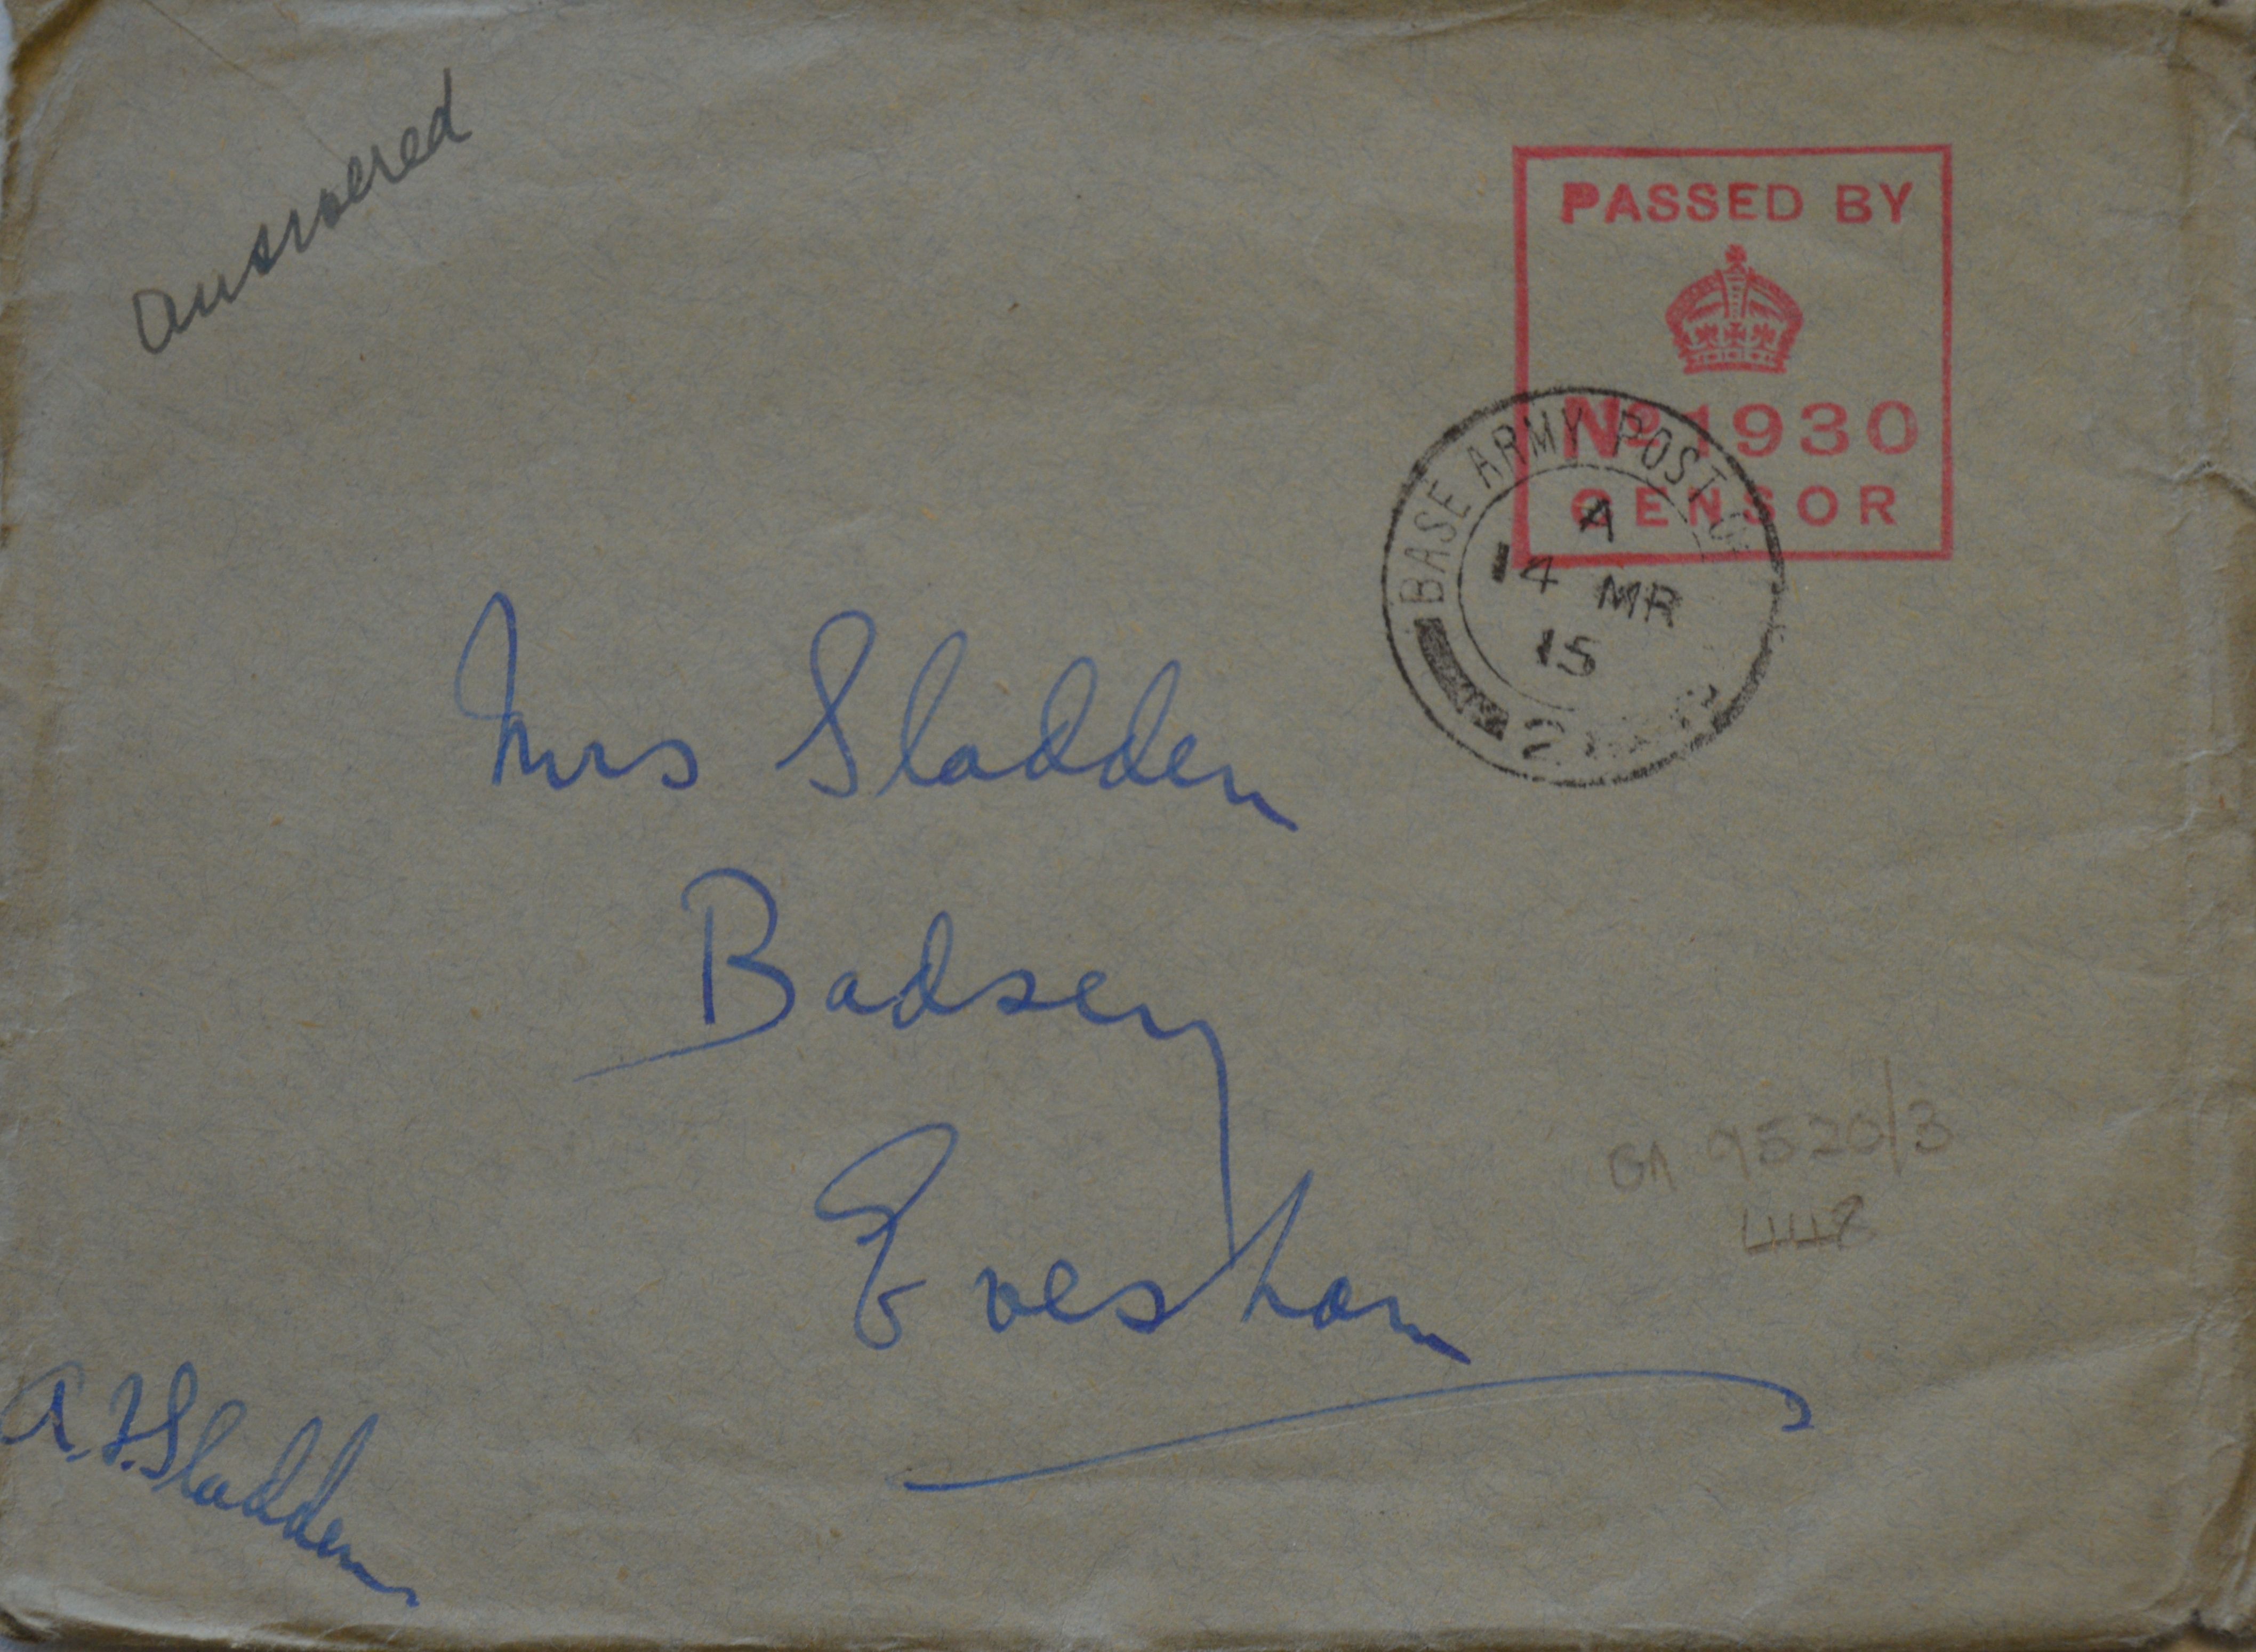 answered
PASSED BY
No 1930
CENSOR
BASE ARMY POST
A
14 MR
15
2
Mrs Sladden
Badsey
Evesham
9520/3
A. F. Sladden